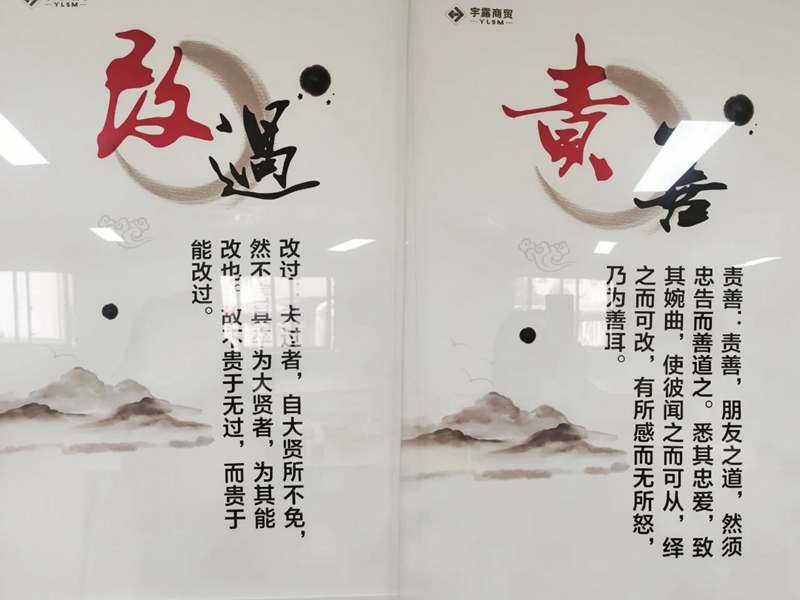 YLSM
改過
改过：夫过者，自大贤所不免，
然不其卒为大贤者，为其能
改也。故不贵于无过，而贵于
能改过。
宇露商贸
YLSM
責善
责善：责善，朋友之道，然须
忠告而善道之。悉其忠爱，致
其婉曲，使彼闻之而可从，绎
之而可改，有所感而无所怒，
乃为善耳。